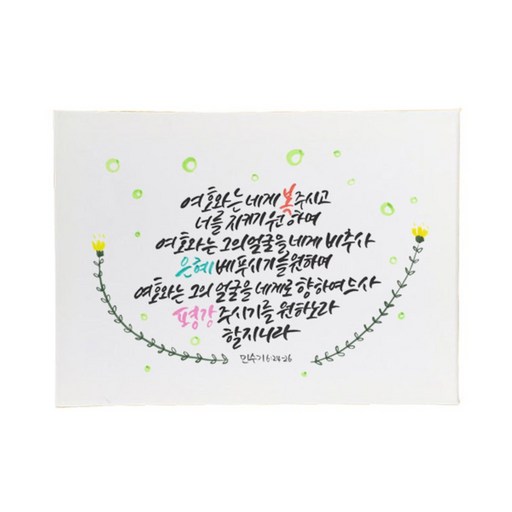 여호와는 네게 복 주시고
너를 지키기 원하며
여호와는 그의 얼굴을 네게 비추사
은혜 베푸시기를 원하며
여호와는 그의 얼굴을 네게로 향하여 드사
평강 주시기를 원하노라
할지니라
민수기 6:24-26